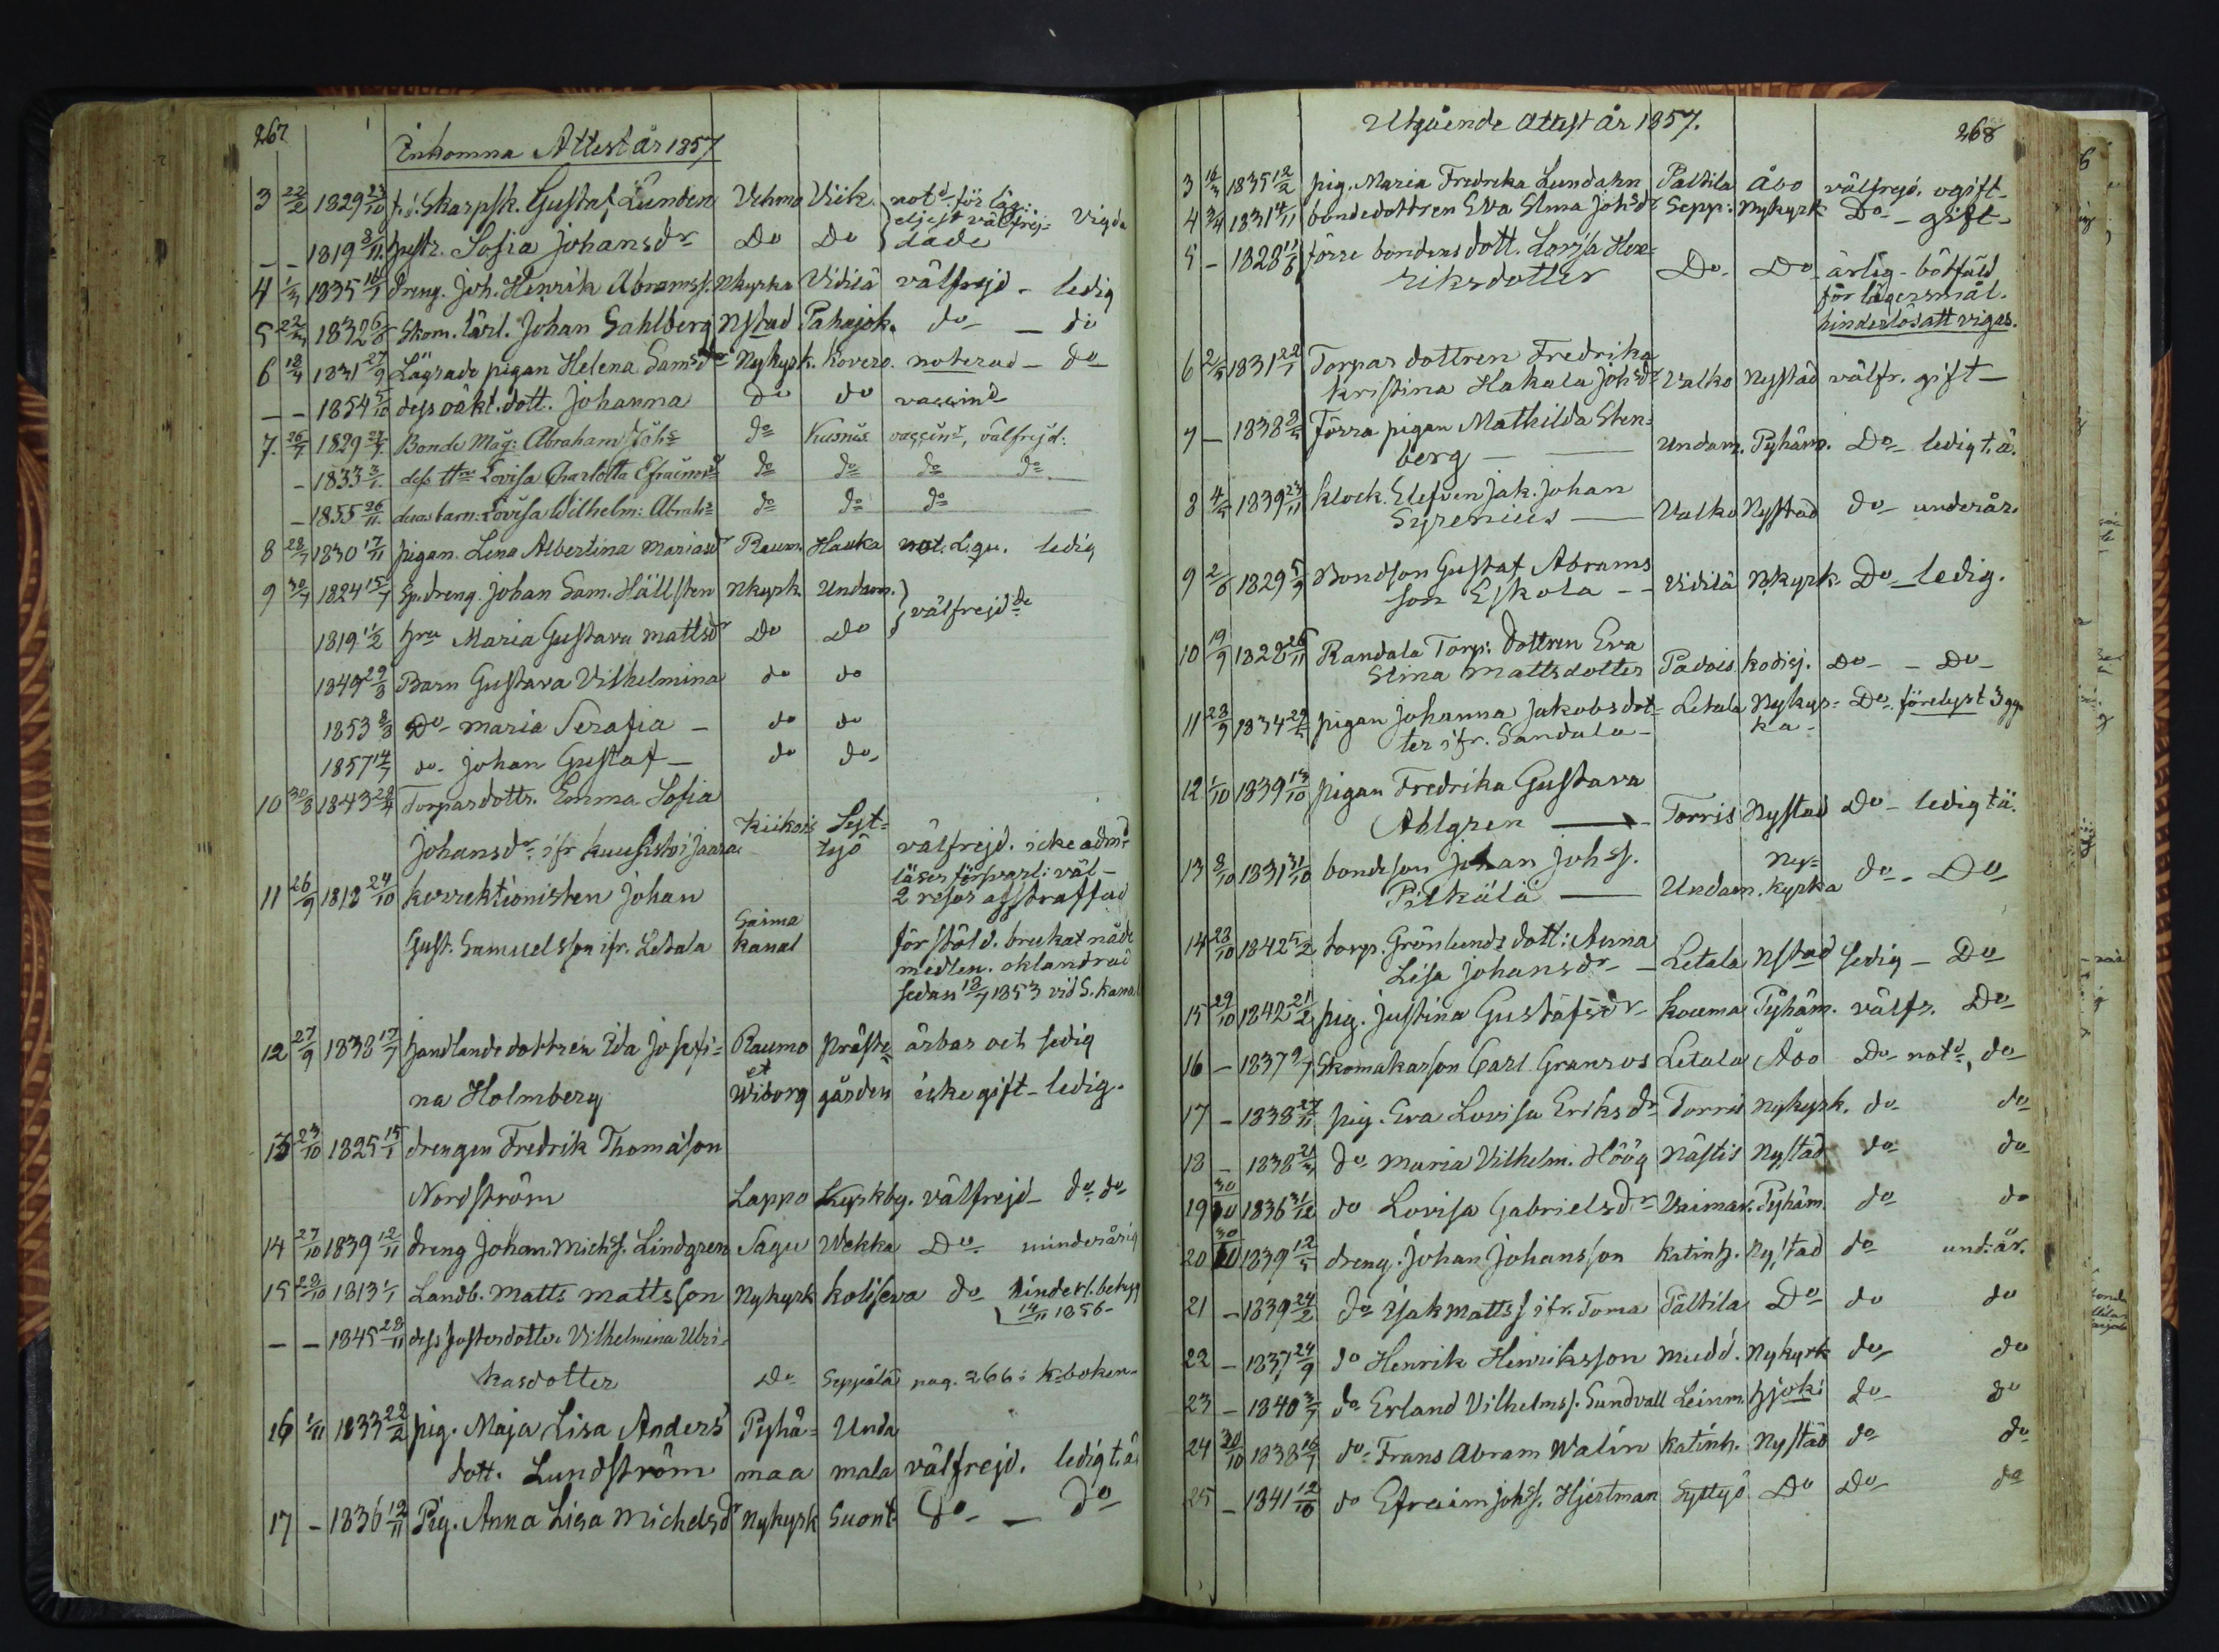 267
Inkomna Attest år 1857
3 22/2 1829 23/10 f.d. Skarpsk. Gustaf Lunden Vehmo Viik. not:d för läg:
eljest välfrej- Vigda
– – 1819 8/11 hustr. Sofia Johansdr Do Do dade
4 1/3 1835 14/7 dreng. Joh. Henrik Abramss. Nkyrka Vidilä välfrejd – ledig
5 22/3 1832 6/8 Skom. lärl. Johan Sahlberg Nstad Pahojok. do – do
6 18/4 1831 27/9 Lägrade pigan Helena Samsdr Nykyrk. Kovero. noterad – do
– – 1854 5/10 dess oäkt. dott. Johanna do do vaccind
7. 26/7 1829 27/7 Bonde Måg: Abraham Johs do Kusnis vaccind, välfrejd:
– 1833 3/1 dess Lovisa Charlotta Efraimsdr do do do do
– 1855 26/11 deras barn: Lovisa Wilhelm: Abrahs do do do
8 28/7 1830 17/11 pigan Lena Albertina Mariasdr Raum. Hauka not. L.gn. ledig
9 30/7 1824 15/7 Sp. dreng. Johan Sam. Hällsten Nkyrk Undam.
välfrejd:de
1819 11/2 hru Maria Gustava mattsdr Do Do
1849 29/8 Barn Gustava Vilhelmina do do
1853 8/8 Do – maria Serafia – do do
1857 14/7 do – Johan Gustaf – do do
10 30/8 1843 28/4 Torpardottr. Emma Sofia
Johansdr ifr Kuusisto i Jaara Kiikois Syt=
työ välfrejd. icke adm:d
läser försvarl: väl –
11 26/9 1818 24/10 korrektionisten Johan 2 resor afstraffad
Gust. Samuelsson ifr. Letala Saima
kanal för stöld. brukat nåde
medlen. oklandrad
sedan 18/7 1853 vid S. kanal
12 27/9 1838 17/7 handlande dottren Ida Josefi= Raumo Präste ärbar och sedig
et
na Holmberg Wiborg gården icke gift – ledig.
13 23/10 1825 15/1 drengen Fredrik Thomasson
Nordström Lappo Kyrkby. välfrejd – do do
14 27/10 1839 12/11 dreng Johan Michss. Lindgren Sagu Wekka Do minderårig
15 28/10 1813 1/1 Landb. Matts mattsson Nykyrk Koliseva do hinderl. betyg
14/11 1856 –
– – 1845 28/11 dess fosterdotter Vilhelmina Ulri-
kasdotter Do Seppälä pag. 266 i K-boken
16 1/11 1833 22/2 pig. Maja Lisa Anders Pyhä= Unda
dott. Lundström maa mala välfrejd. ledig t.ä
17 – 1836 12/11 Pig. Anna Lisa Michelsdr Nykyrk Suont do – do
Utgående attest år 1857.
268
3 16/3 1835 12/2 pig. Maria Fredrika Lundahn Paltila Åbo välfrejd. ogift –
4 2/4 1831 4/11 bondedottren Eva Stina Johsdr Sepp: Nykyrk Do – gift –
5 – 1828 11/8 förre bondens dott. Lovisa Hen=
riksdotter Do – Do ärlig – bötfäld
för lägersmål.
hinderlös att vigas.
6 2/5 1831 22/1 Torpar dottren Fredrika
Kristina Hakala Johsdr Valko Nystad välfr. gift –
7 – 1838 2/5 Förra pigan Mathilda Sten=
berg – Undam. Pyhäm. Do – ledig t.ä.
8 4/5 1839 23/11 Klock. Elefven Jak. Johan
Syrenius – Valko Nystad do – underår.
9 2/6 1829 5/9 Bondson Gustaf Abrams
son Eskola – – Vidilä Nkyrk Do – ledig.
10 19/9 1828 26/11 Randala Torp: dottren Eva
Stina Mattsdotter Padois Kodisj. Do – – Do –
11 28/9 1834 29/5 pigan Johanna Jakobsdot= Letala Nykyr= Do – förelyst 3 gg
ter ifr. Sandala – ka –
12 1/10 1839 13/10 pigan Fredrika Gustava
Ahlgren – Torris Nystad Do – ledig t.ä.
13 8/10 1831 31/10 bondeson Johan Johss.
Pitkälä – Undam. Ny=
kyrka do – Do
14 28/10 1842 5/2 torp. Grönlunds dott: Anna
Lisa Johansdr – Letala Nstad sedig – Do
15 29/10 1842 21/2 pig. Justina Gustafsdr Kouma Pyhäm. välfr. Do –
16 – 1837 9/7 Skomakarson Carl Granros Letala Åbo Do – not:d, do
17 – 1838 27/11 pig. Eva Lovisa Eriksdr Torris Nykyrk. do do
18 – 1838 21/3 do Maria Vilhelm. Höög Nästis Nystad do do
19 30/10 1836 31/12 do Lovisa Gabrielsdr Vaimar. Pyhäm. do do
20 30/10 1839 12/5 dreng. Johan Johansson Katinh. Nystad do und:år.
21 – 1839 24/2 do Isak Mattss ifr. Toma Paltila Do do do
22 – 1837 24/9 do Henrik Henriksson Mudd. Nykyrk do do
23 – 1840 3/7 do Erland Vilhelmss. Sundvall Leinm. Hjoki do do
24 30/10 1838 16/7 do Frans Abram Walin Katinh. Nystad do do
25 – 1841 12/10 do Efraim Johss. Hjertman Syttyö Do Do do